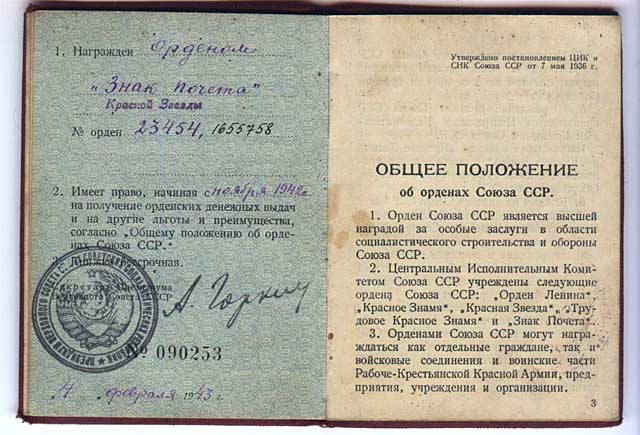 1. Награжден Орденом
„Знак почета“
Красной Звезды
№ орден 23454, 1655758
2. Имеет право, начиная с ноября 1942 г
на получение орденских денежных выдач
и на другие льготы и преимущества,
согласно „Общему положению об орде-
нах Союза ССР.“
3. Книжка бессрочная.
Секретарь Президиума
Верховного Совета СССР
А. Горкин
№ 090253
„4 „ февраля 1943 г.
Утверждено постановлением ЦИК и
СНК Союза ССР от 7 мая 1936 г.
ОБЩЕЕ ПОЛОЖЕНИЕ
об орденах Союза ССР.
1. Орден Союза ССР является высшей
наградой за особые заслуги в области
социалистического строительства и обороны
Союза ССР.
2. Центральным Исполнительным Коми-
тетом Союза ССР учреждены следующие
ордена Союза ССР: „Орден Ленина“,
„Красное Знамя“, „Красная Звезда“, „Тру-
довое Красное Знамя“ и „Знак Почета“.
3. Орденами Союза ССР могут награ-
ждаться как отдельные граждане, так и
войсковые соединения и воинские части
Рабоче-Крестьянской Красной Армии, пред-
приятия, учреждения и организации.
3